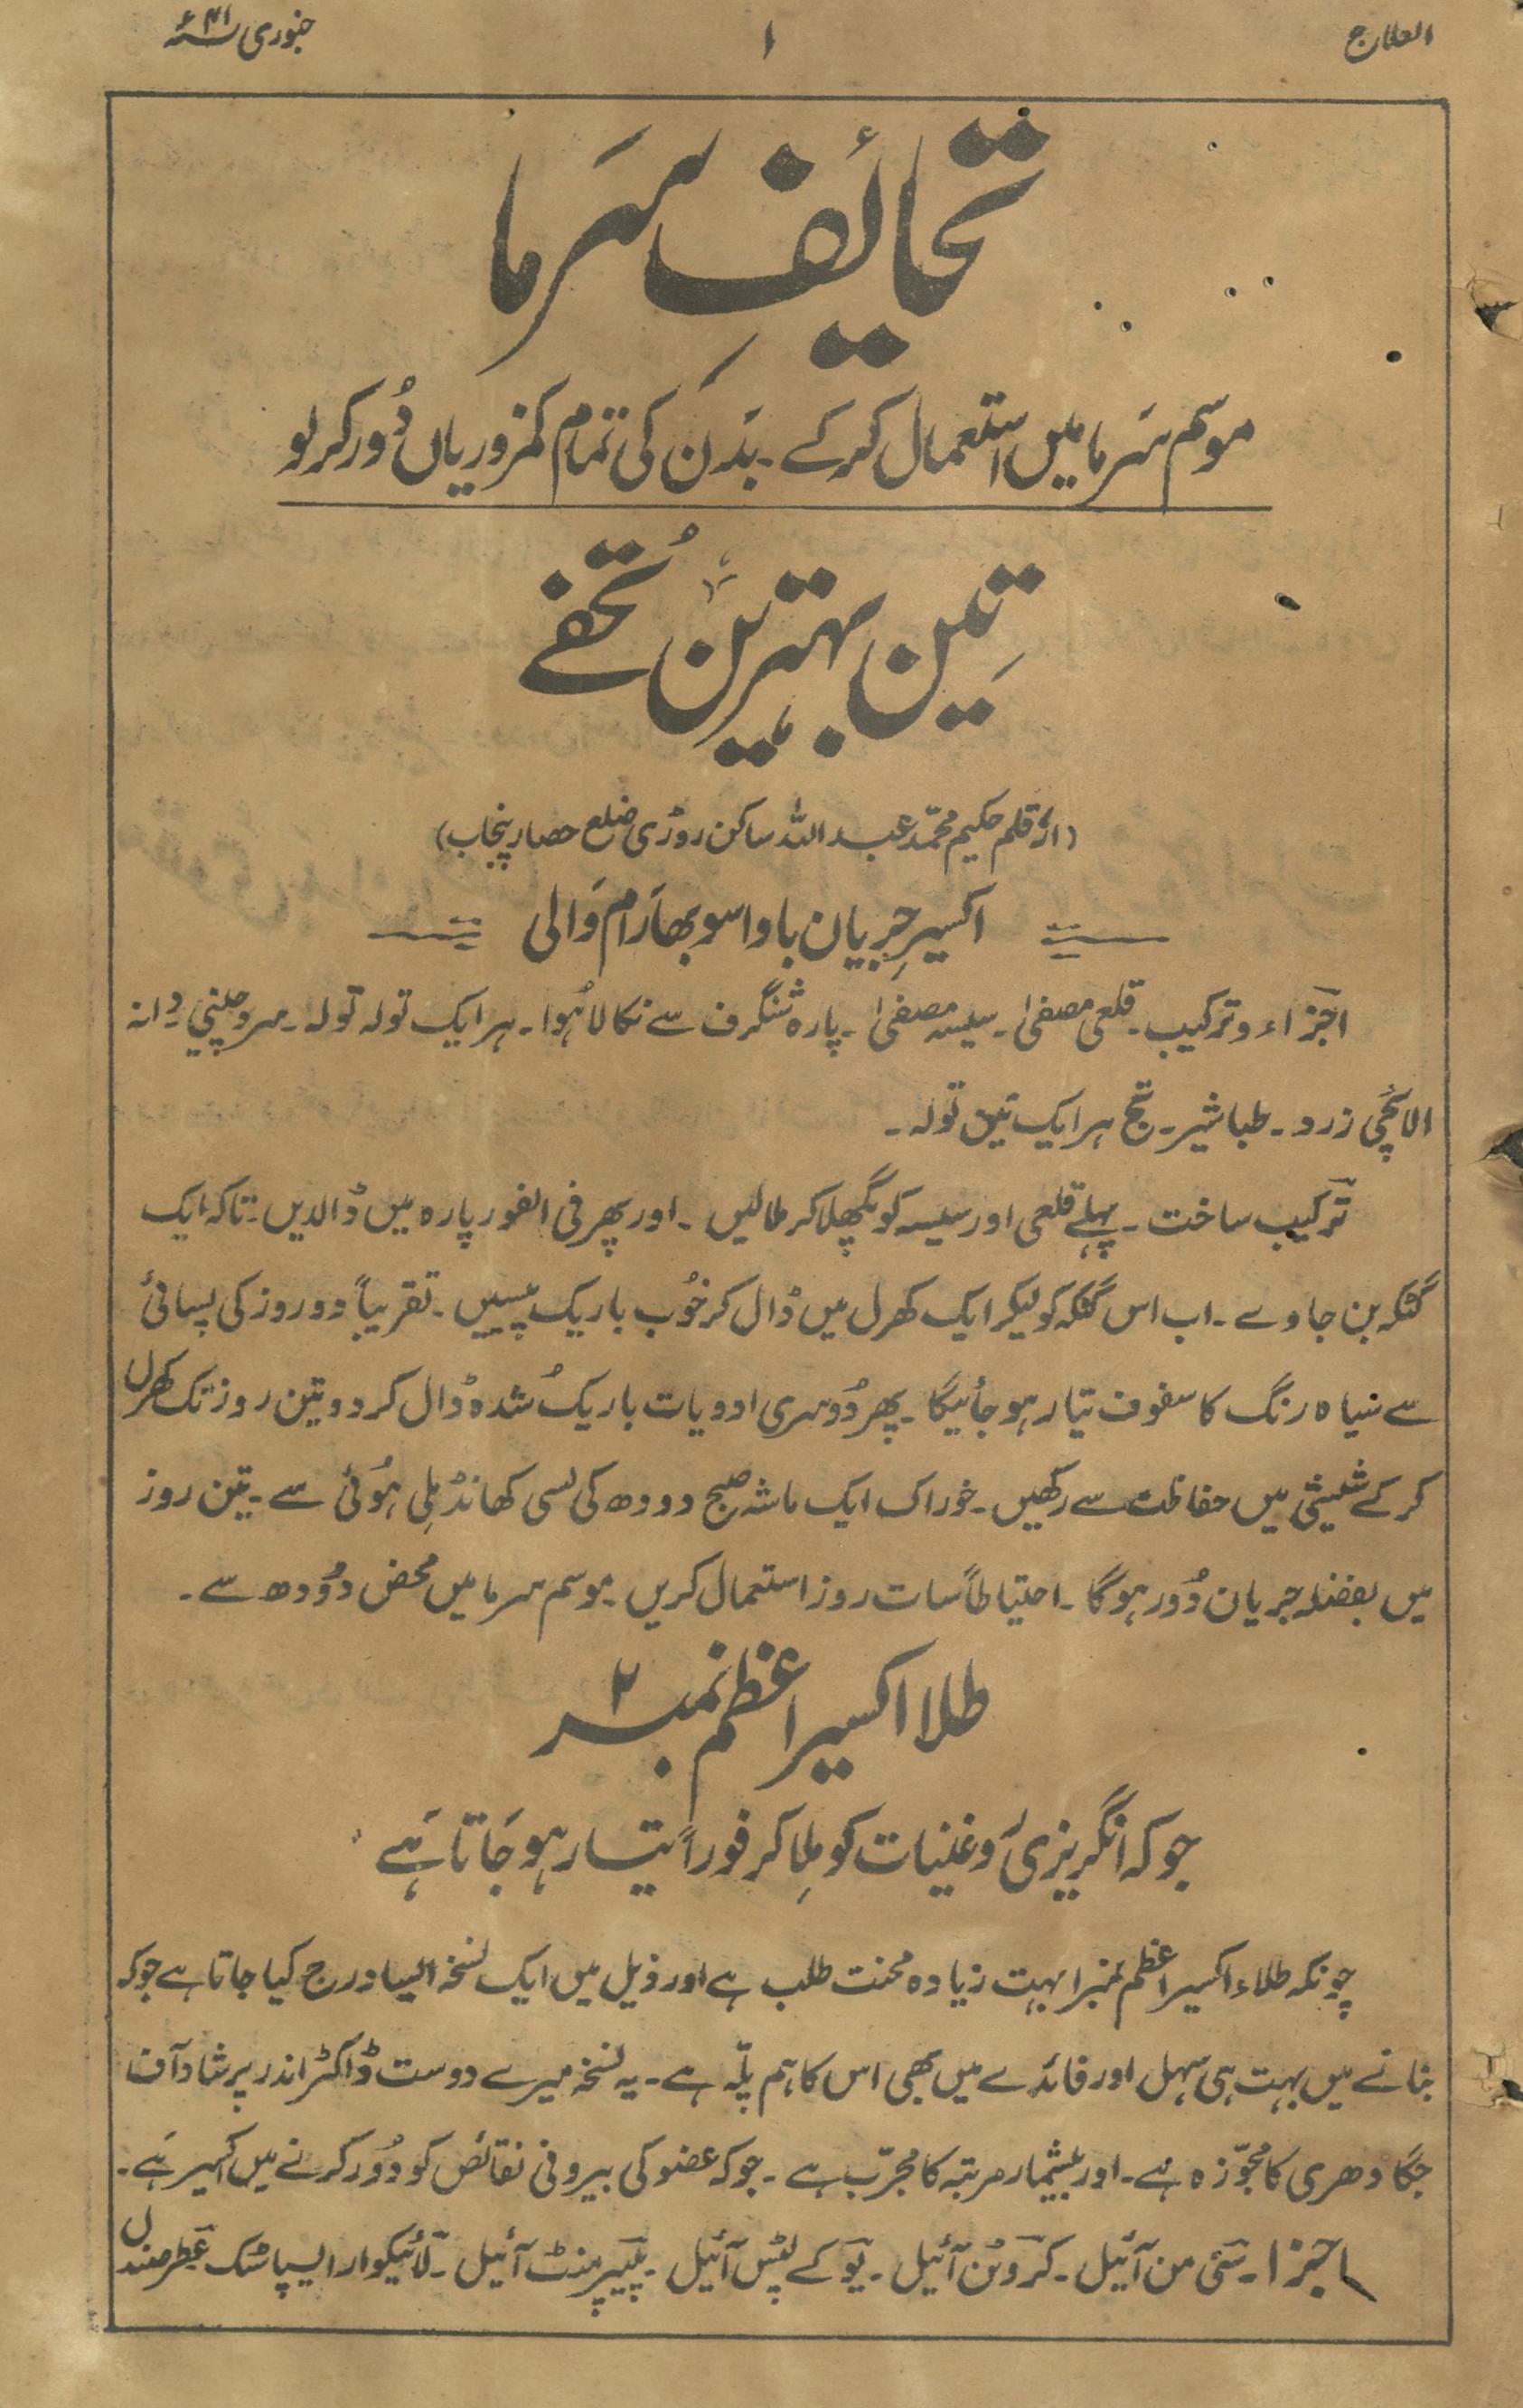 العلاج
۱
جنوری ۴۱ء
تحائفِ سَرما
موسم سَرما میں استعمال کر کے ۔ بَدَن کی تمام کمزوریاں دُور کر لو
تین بہترین تُحفے
(از قلم حکیم محمّد عبد اللہ ساکن روڑی ضلع حصار پنجاب)
اکسیرِ جریان باوا سوبھا رَام وَالی
اجزاء و ترکیب ۔ قلعی مصفیٰ ۔ سیسہ مصفیٰ ۔ پارہ شنگرف سے نکالا ہُوا ۔ ہر ایک تولہ تولہ ۔ سرد چلنیِ دانہ
الائچی زرد ۔ طباشیر ۔ تج ہر ایک تین تولہ ۔
ترکیب ساخت ۔ پہلے قلعی اور سیسہ کو پگھلا کر ملالیں ۔ اور پھر فی الفور پارہ میں ڈالدیں ۔ تاکہ ایک
گٹکہ بن جاوے ۔ اب اس گٹکہ کو لیکر ایک کھرل میں ڈال کر خُوب باریک پیسیں ۔ تقریباً دو روز کی پسائی
سے سیاہ رنگ کا سفوف تیار ہو جائیگا ۔ پھر دُوسری ادویات باریک شدہ ڈال کر دو تین روز تک کھرل
کر کے شیشی میں حفاظت سے رکھیں ۔ خوراک ایک ماشہ صبح دودھ کی لسی کھانڈ مِلی ہُوئی سے ۔ تین روز
میں بفضلہ جریان دُور ہو گا ۔ احتیاطاً سات روز استعمال کریں ۔ موسم سرما میں محض دوُدھ سے ۔
طلا اکسیر اعظم نمبر ۲
جو کہ انگریزی روغنیات کو مِلا کر فوراً تیار ہو جَاتا ہَے
چونکہ طلاء اکسیر اعظم نمبر ۱ بہت زیادہ محنت طلب ہے اور ذیل میں ایک نسخہ ایسا درج کیا جاتا ہے جو کہ
بنانے میں بہت ہی سہل اور فائدے میں بھی اس کا ہم پلّہ ہے ۔ یہ نسخہ میرے دوست ڈاکٹر اندر پرشاد آف
جگادھری کا مجوّزہ ہے ۔ اور بیشمار مرتبہ کا مجرّب ہے ۔ جو کہ عضو کی بیرونی نقائص کو دُور کرنے میں اکسیر ہَے ۔
اجزا ۔ سَنی من آئیل ۔ کروٹن آئیل ۔ یَو کے لپٹس آئیل ۔ پیپر منٹ آئیل ۔ لَائیکوار ایسپاسٹک عطر صندل